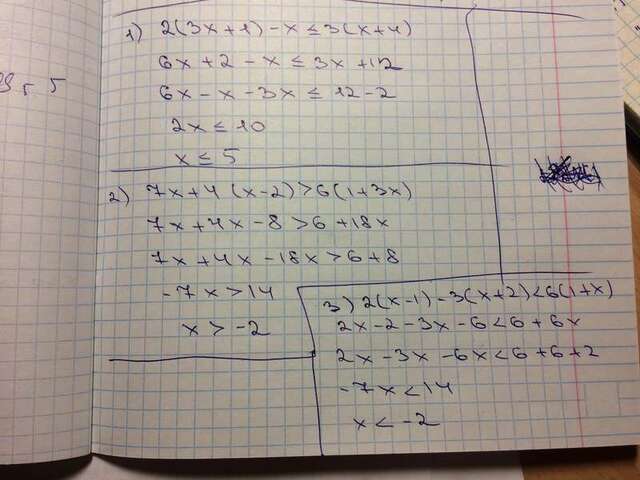 1) 2(3x+1)-x≤3(x+4)
6x+2-x≤3x+12
6x-x-3x≤12-2
2x≤10
x≤5
2) 7x+4(x-2)>6(1+3x)
7x+4x-8>6+18x
7x+4x-18x>6+8
-7x>14
x>-2
3) 2(x-1)-3(x+2)<6(1+x)
2x-2-3x-6<6+6x
2x-3x-6x<6+6+2
-7x<14
x<-2